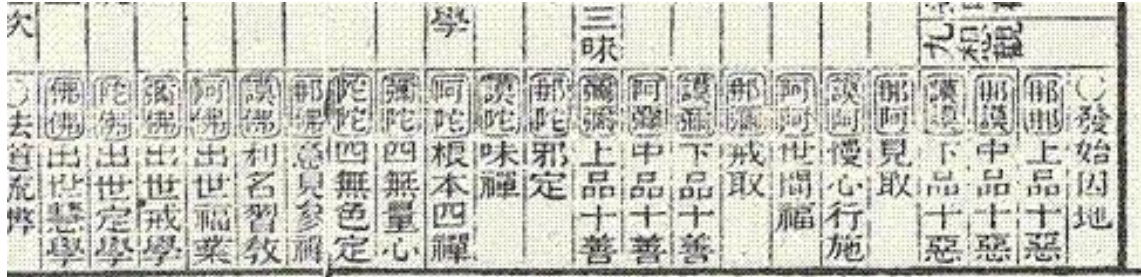 九想観
三昧
學
次
〇發始因地
那那上品十惡
那謨中品十惡
謨謨下品十惡
那阿見取
謨阿慢心行施
阿阿世間福
那彌戒取
謨彌下品十善
阿彌中品十善
彌彌上品十善
那陀邪定
謨陀味禪
阿陀根本四禪
彌陀四無量心
陀陀四無色定
那佛見參禪
謨佛利名習教
阿佛出世福業
彌佛出世戒學
陀佛出世定學
佛佛出世慧學
〇去道流弊